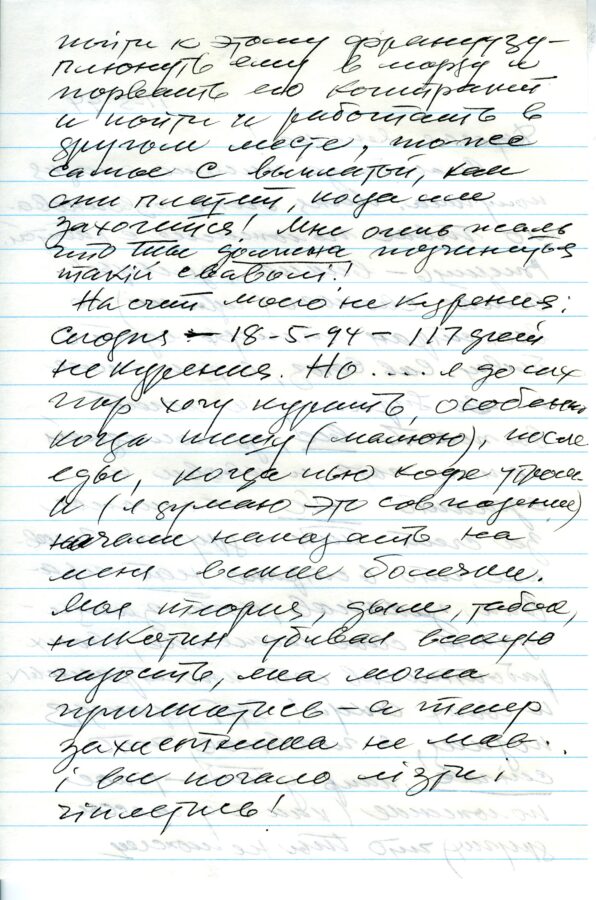 пойти к этому французу-
плюнуть ему в морду и
порвать его контракт
и пойти и работать в
другом месте, то же
самое с выплатой, как
они платят, когда им
захочится! Мне очень жаль
что ты должна подчиняться
такій сваволі!
На счёт моего не курения:
Сиодня - 18-5-94 - 117 дней
не курения. Но .... я до сих
пор хочу курить, особенно
когда пишу (малюю), после
еды, когда пью кофе утром
и (я думаю это совпадение)
начали нападать на
меня всякие болячки.
Моя теория, дым, табак,
никотин убивал всякую
гадость, яка могла
причепатись - а тепер
захистника не мав..
і все почало лізти і
чіплятись!